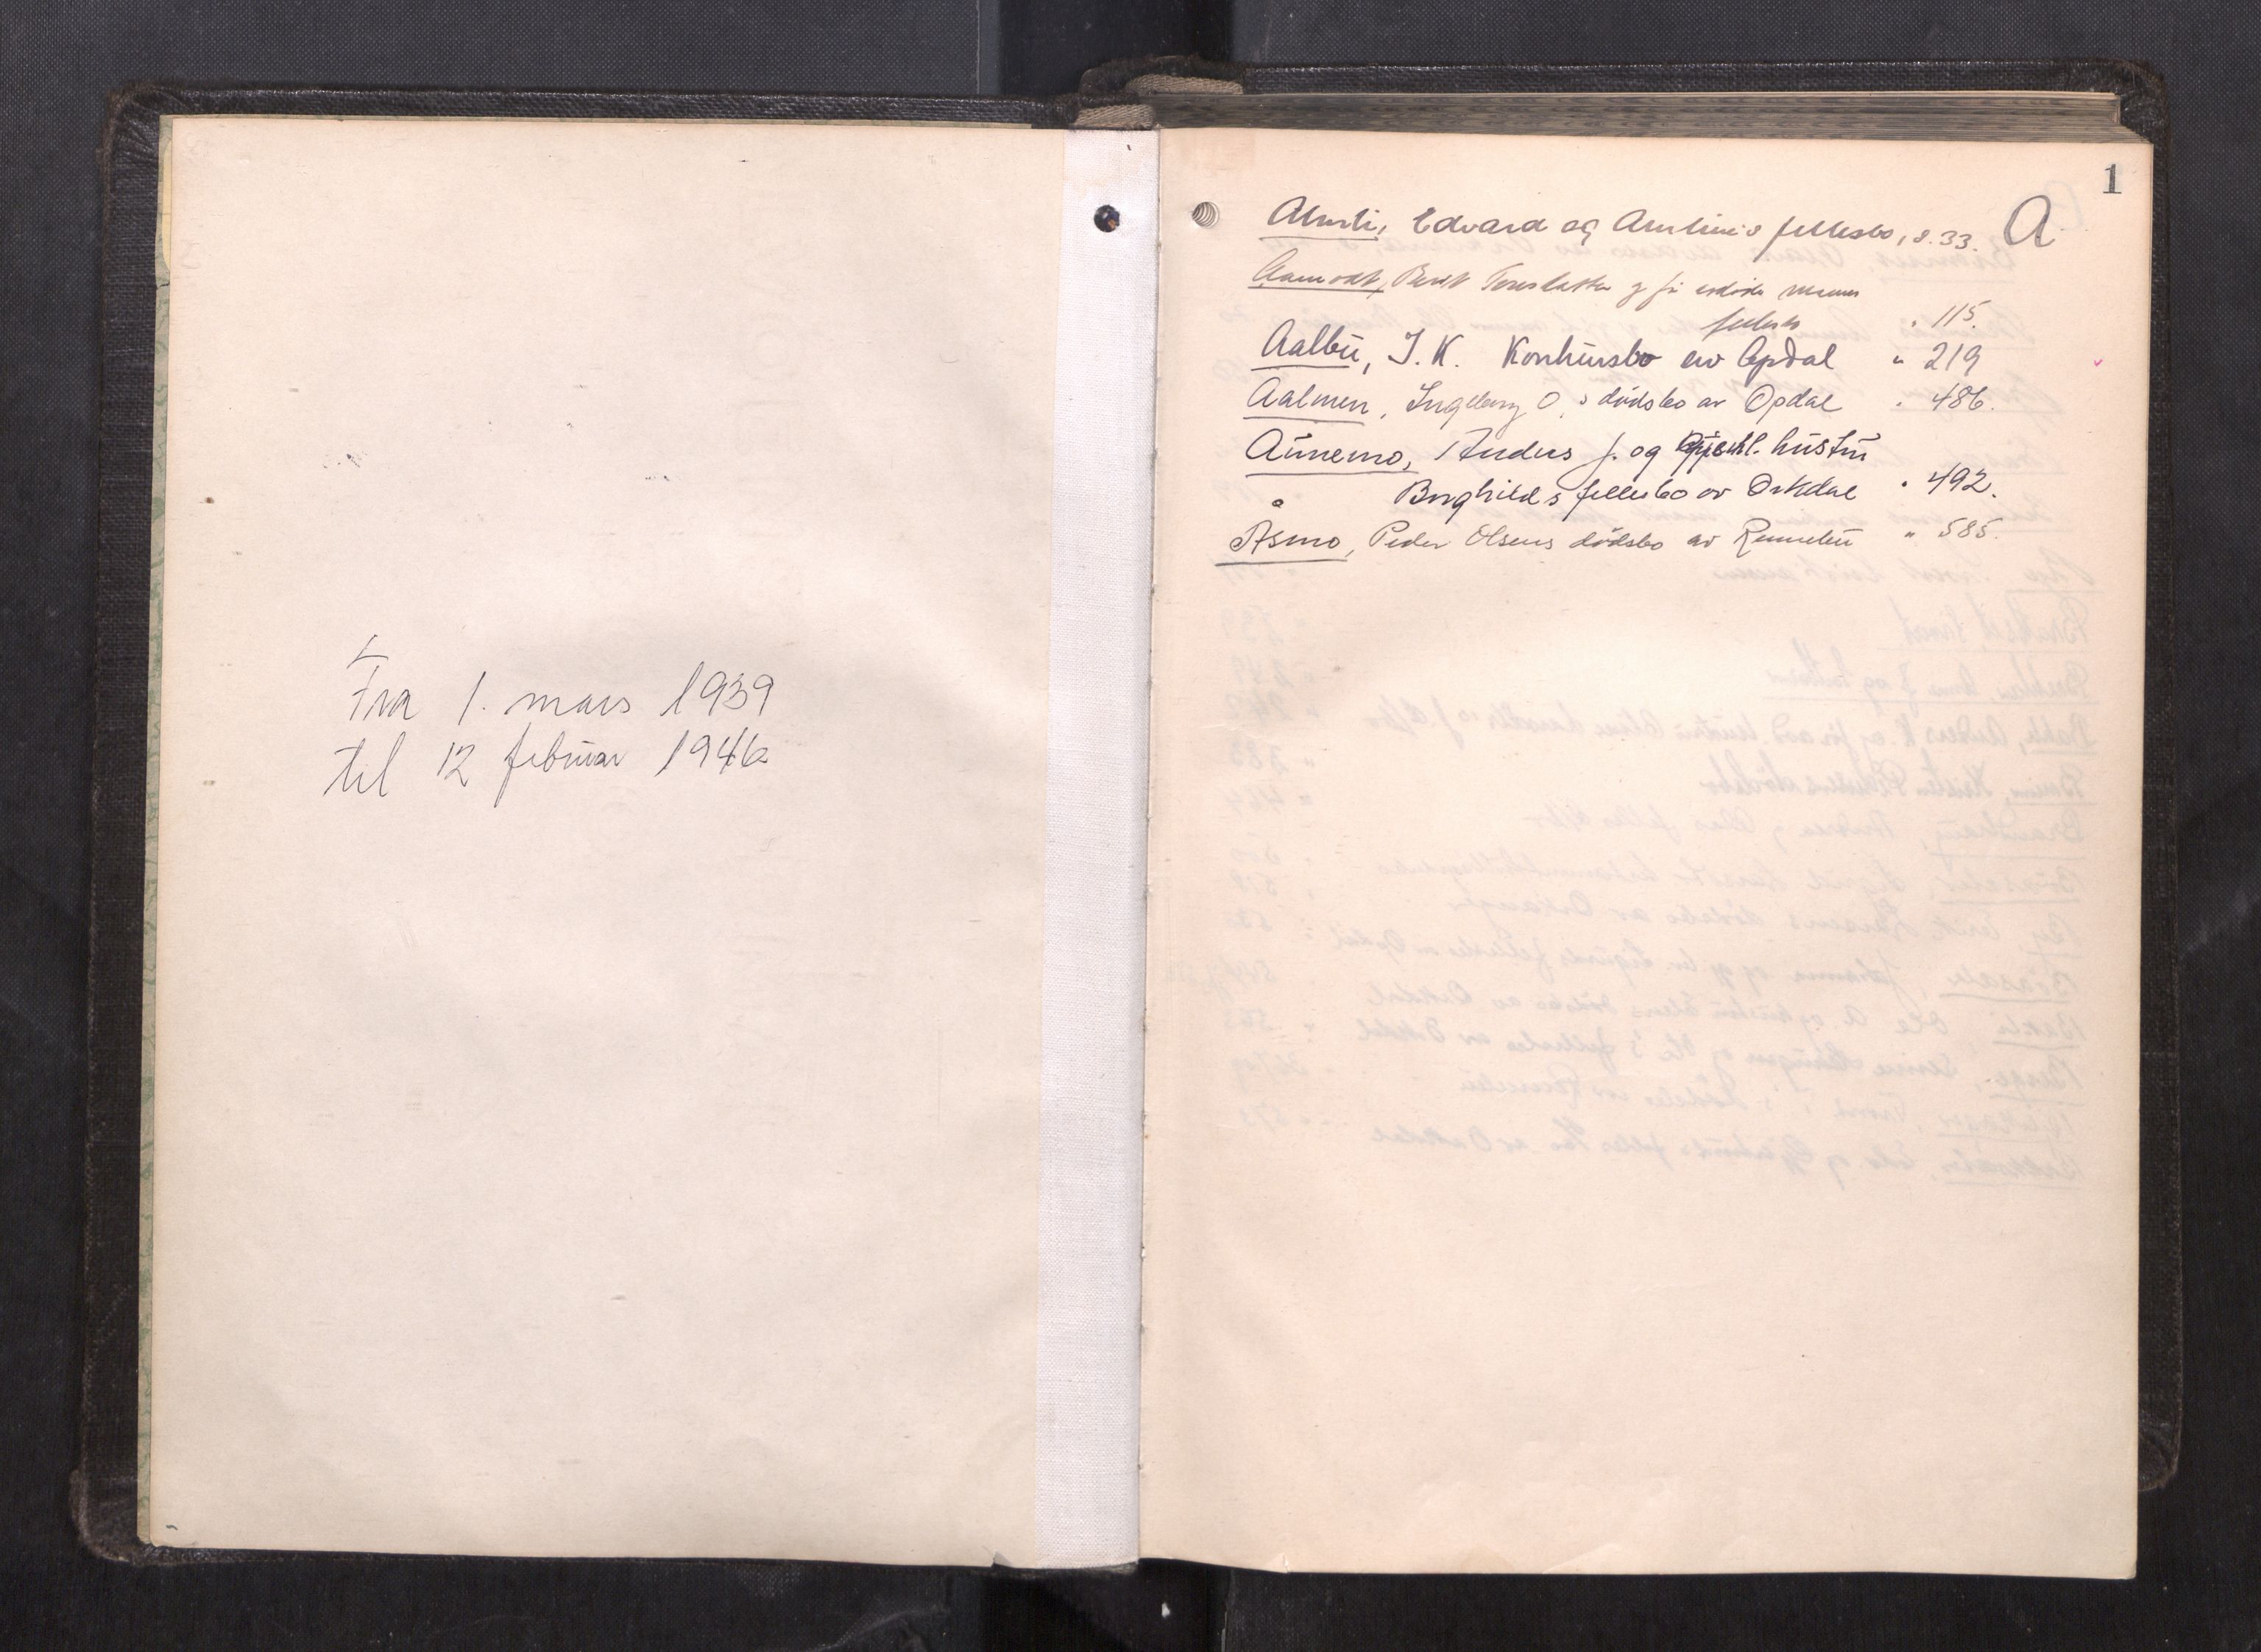 Fra 1. mars 1939
til 12 februar 1946
1
A
Edvard og fellesbo, s. 33.
Berit og før avdøde manns
fellesbo " 115.
Aalbu, J. K. Konkursbo av Opdal " 219
Aalmen, Ingeborg O.s dødsbo av Opdal " 486.
Aunemo, Anders J. og gjenl. hustru
Borghilds fellesbo av Orkdal " 492.
Åsmo, Peder Olsens dødsbo av Rennebu " 585.